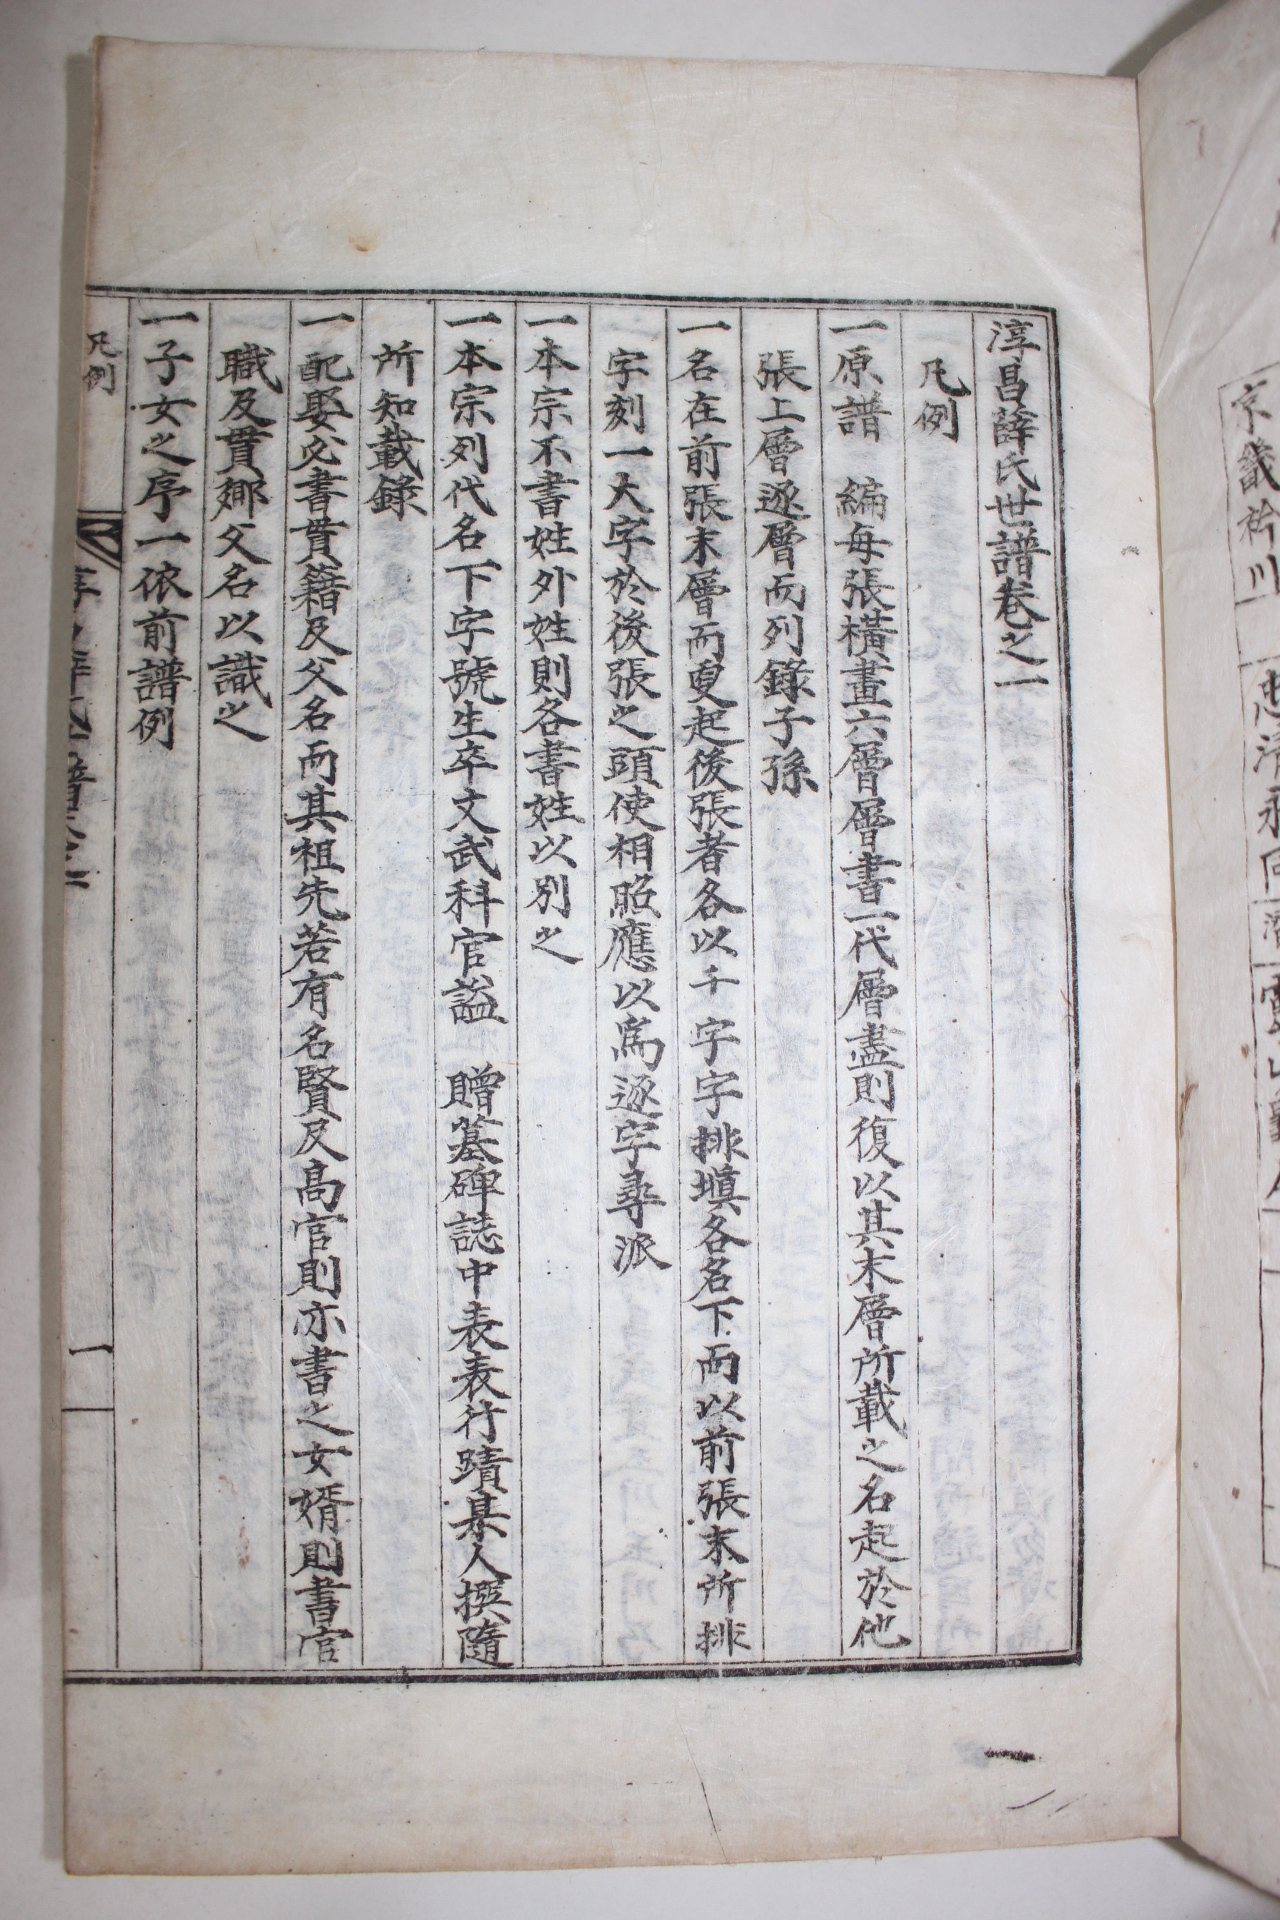 淳昌薛氏世譜卷之一
凡例
一原譜 編每張橫畫六層層書一代層盡則復以其末層所載之名起於他
張上層逐層而列錄子孫
一名在前張末層而更起後張者各以千字字排塡各名下而以前張末所排
字刻一大字於後張之頭使相照應以爲逐字尋派
一本宗不書姓外姓則各書姓以別之
一本宗列代名下字號生卒文武科官謚 贈墓碑誌中表表行蹟某人撰隨
所知載錄
一配娶必書貫籍及父名而其祖先若有名賢及高官則亦書之女婿則書官
職及貫鄕父名以識之
一子女之序一依前譜例
凡例
一
京畿衿川
忠淸永同